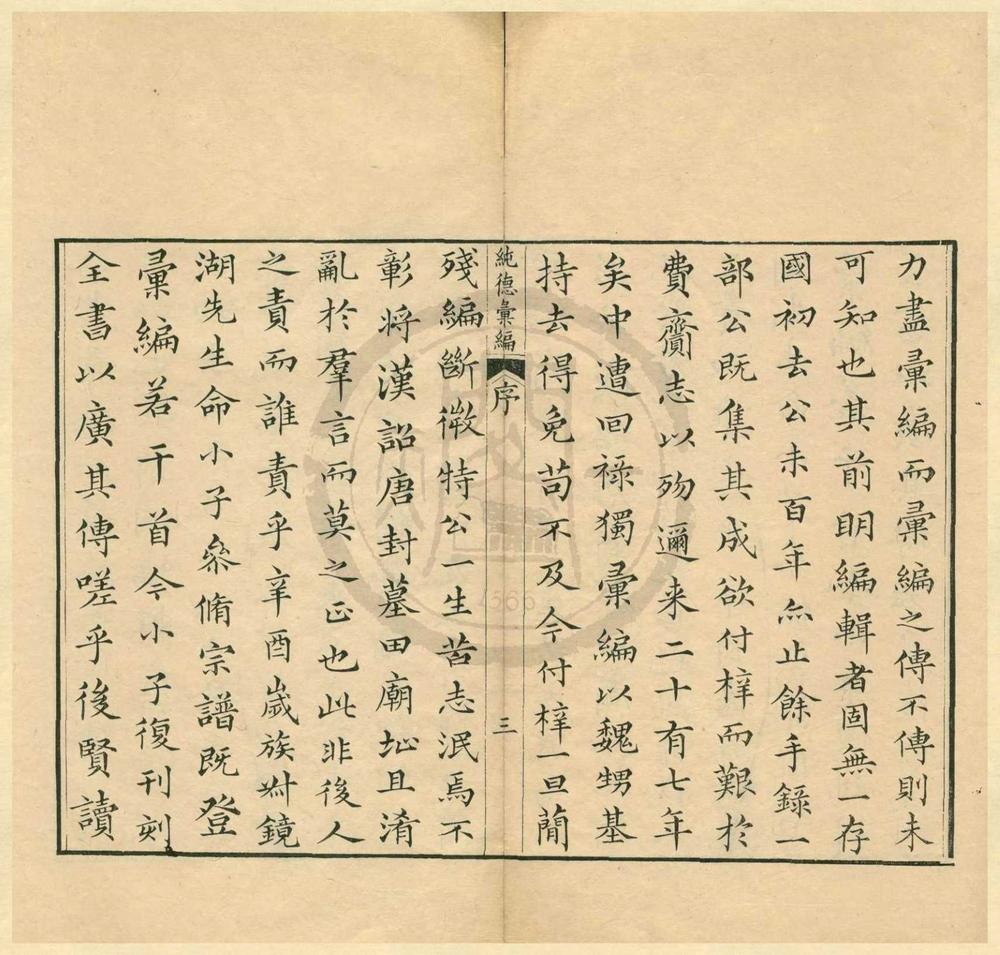 力盡彙編而彙編之傳不傳則未
可知也其前明編輯者固無一存
國初去公未百年亦止餘手錄一
部公既集其成欲付梓而艱於
費齎志以歿邇来二十有七年
矣中遭回祿獨彙編以魏甥基
持去得免苟不及今付梓一旦蕳
純德彙編
序
三
殘編斷徵特公一生苦志泯焉不
彰将漢詔唐封墓田廟址且淆
亂於羣言而莫之正也此非後人
之責而誰責乎辛酉嵗族叔鏡
湖先生命小子叅脩宗譜既登
彙編若干首今小子復刊刻
全書以廣其傳嗟乎後賢讀
1566